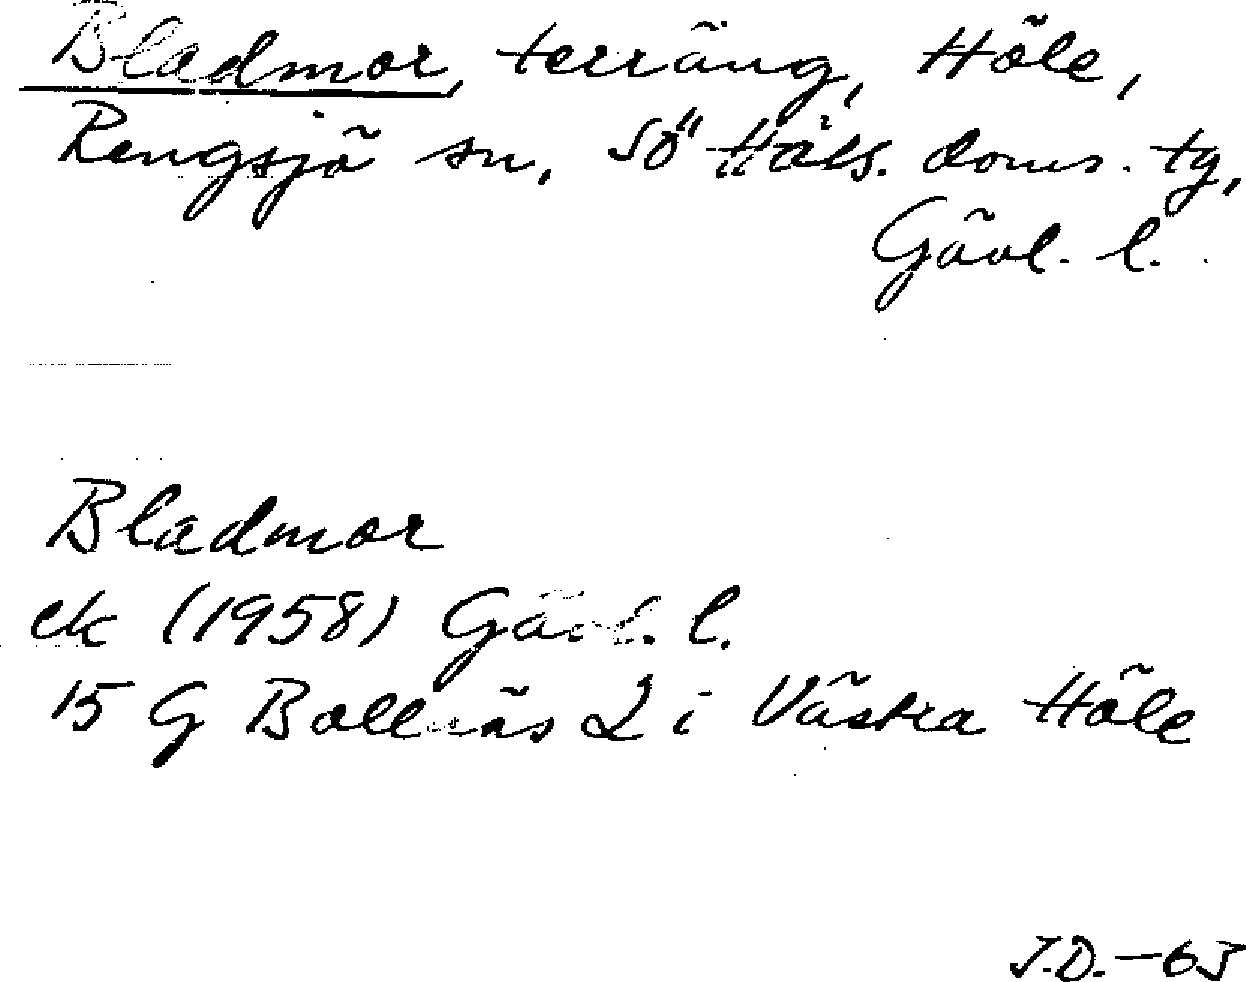 Bladmor, terräng, Höle,
Rengsjö sn, SÖ Häls. doms. tg,
Gävl. l.
Bladmor
ek (1958) Gävl. l.
15 G Bollnäs 2 i Västra Höle
J.D.-63